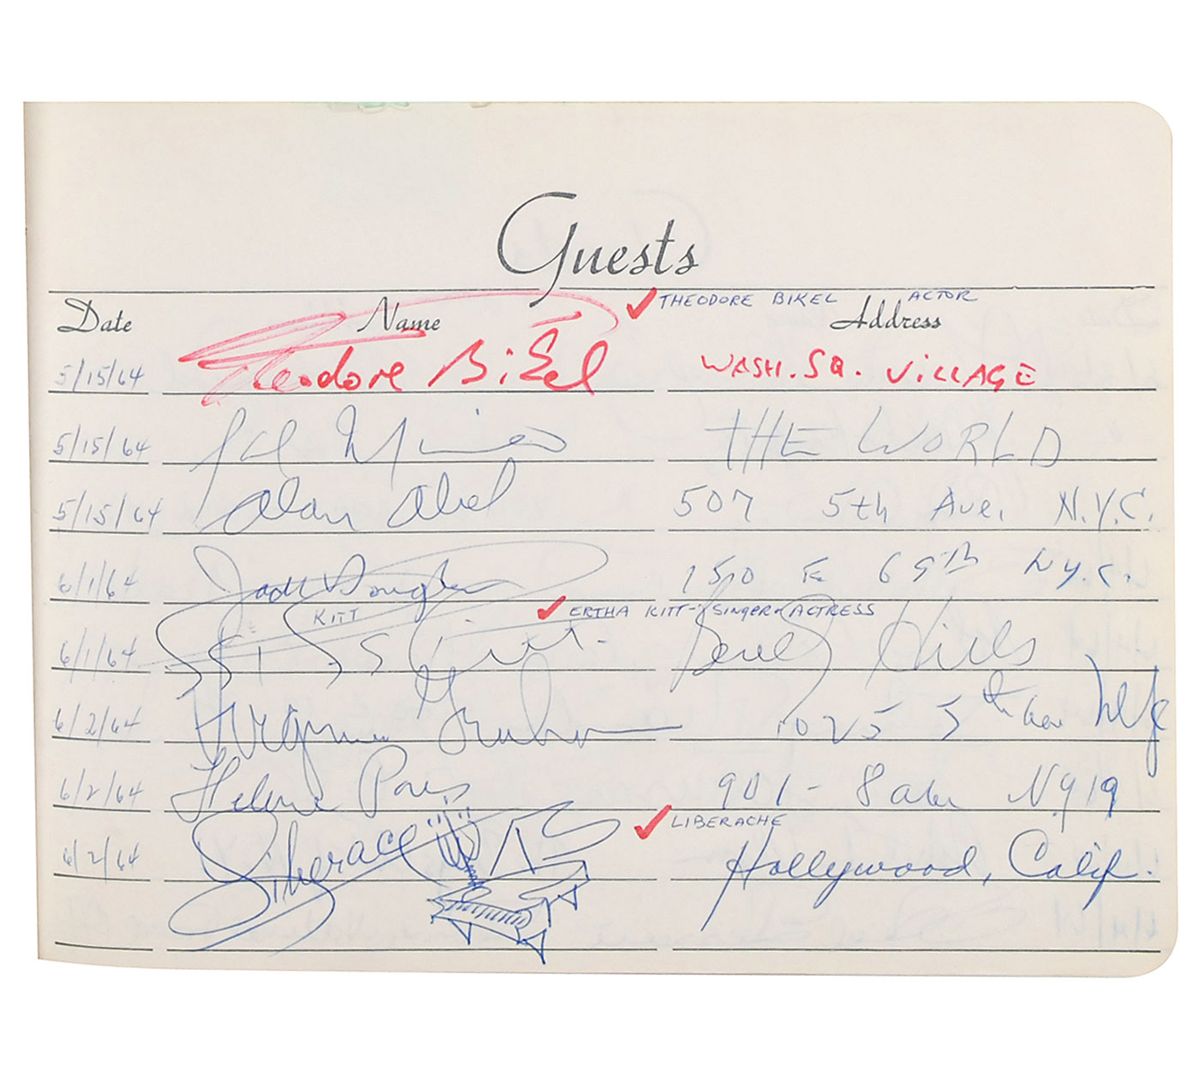 Guests
✓ THEODORE BIKEL ACTOR
Date Name Address
5/15/64 Theodore Bikel WASH. SQ. ViLLAGE
5/15/64 THE WORLD
5/15/64 Alan Abel 507 5th Ave. N.Y.C.
6/1/64 Jack Douglas 150 E 69th N.Y.C.
KITT ✓ ERTHA KITT - SINGER - ACTRESS
6/1/64 Kitt Beverly Hills
6/2/64 Virginia Graham 1025 5th Ave NYC
6/2/64 Helene 901 - 8 Ave NY 19
✓ LIBERACHE
6/2/64 Liberace Hollywood, Calif.